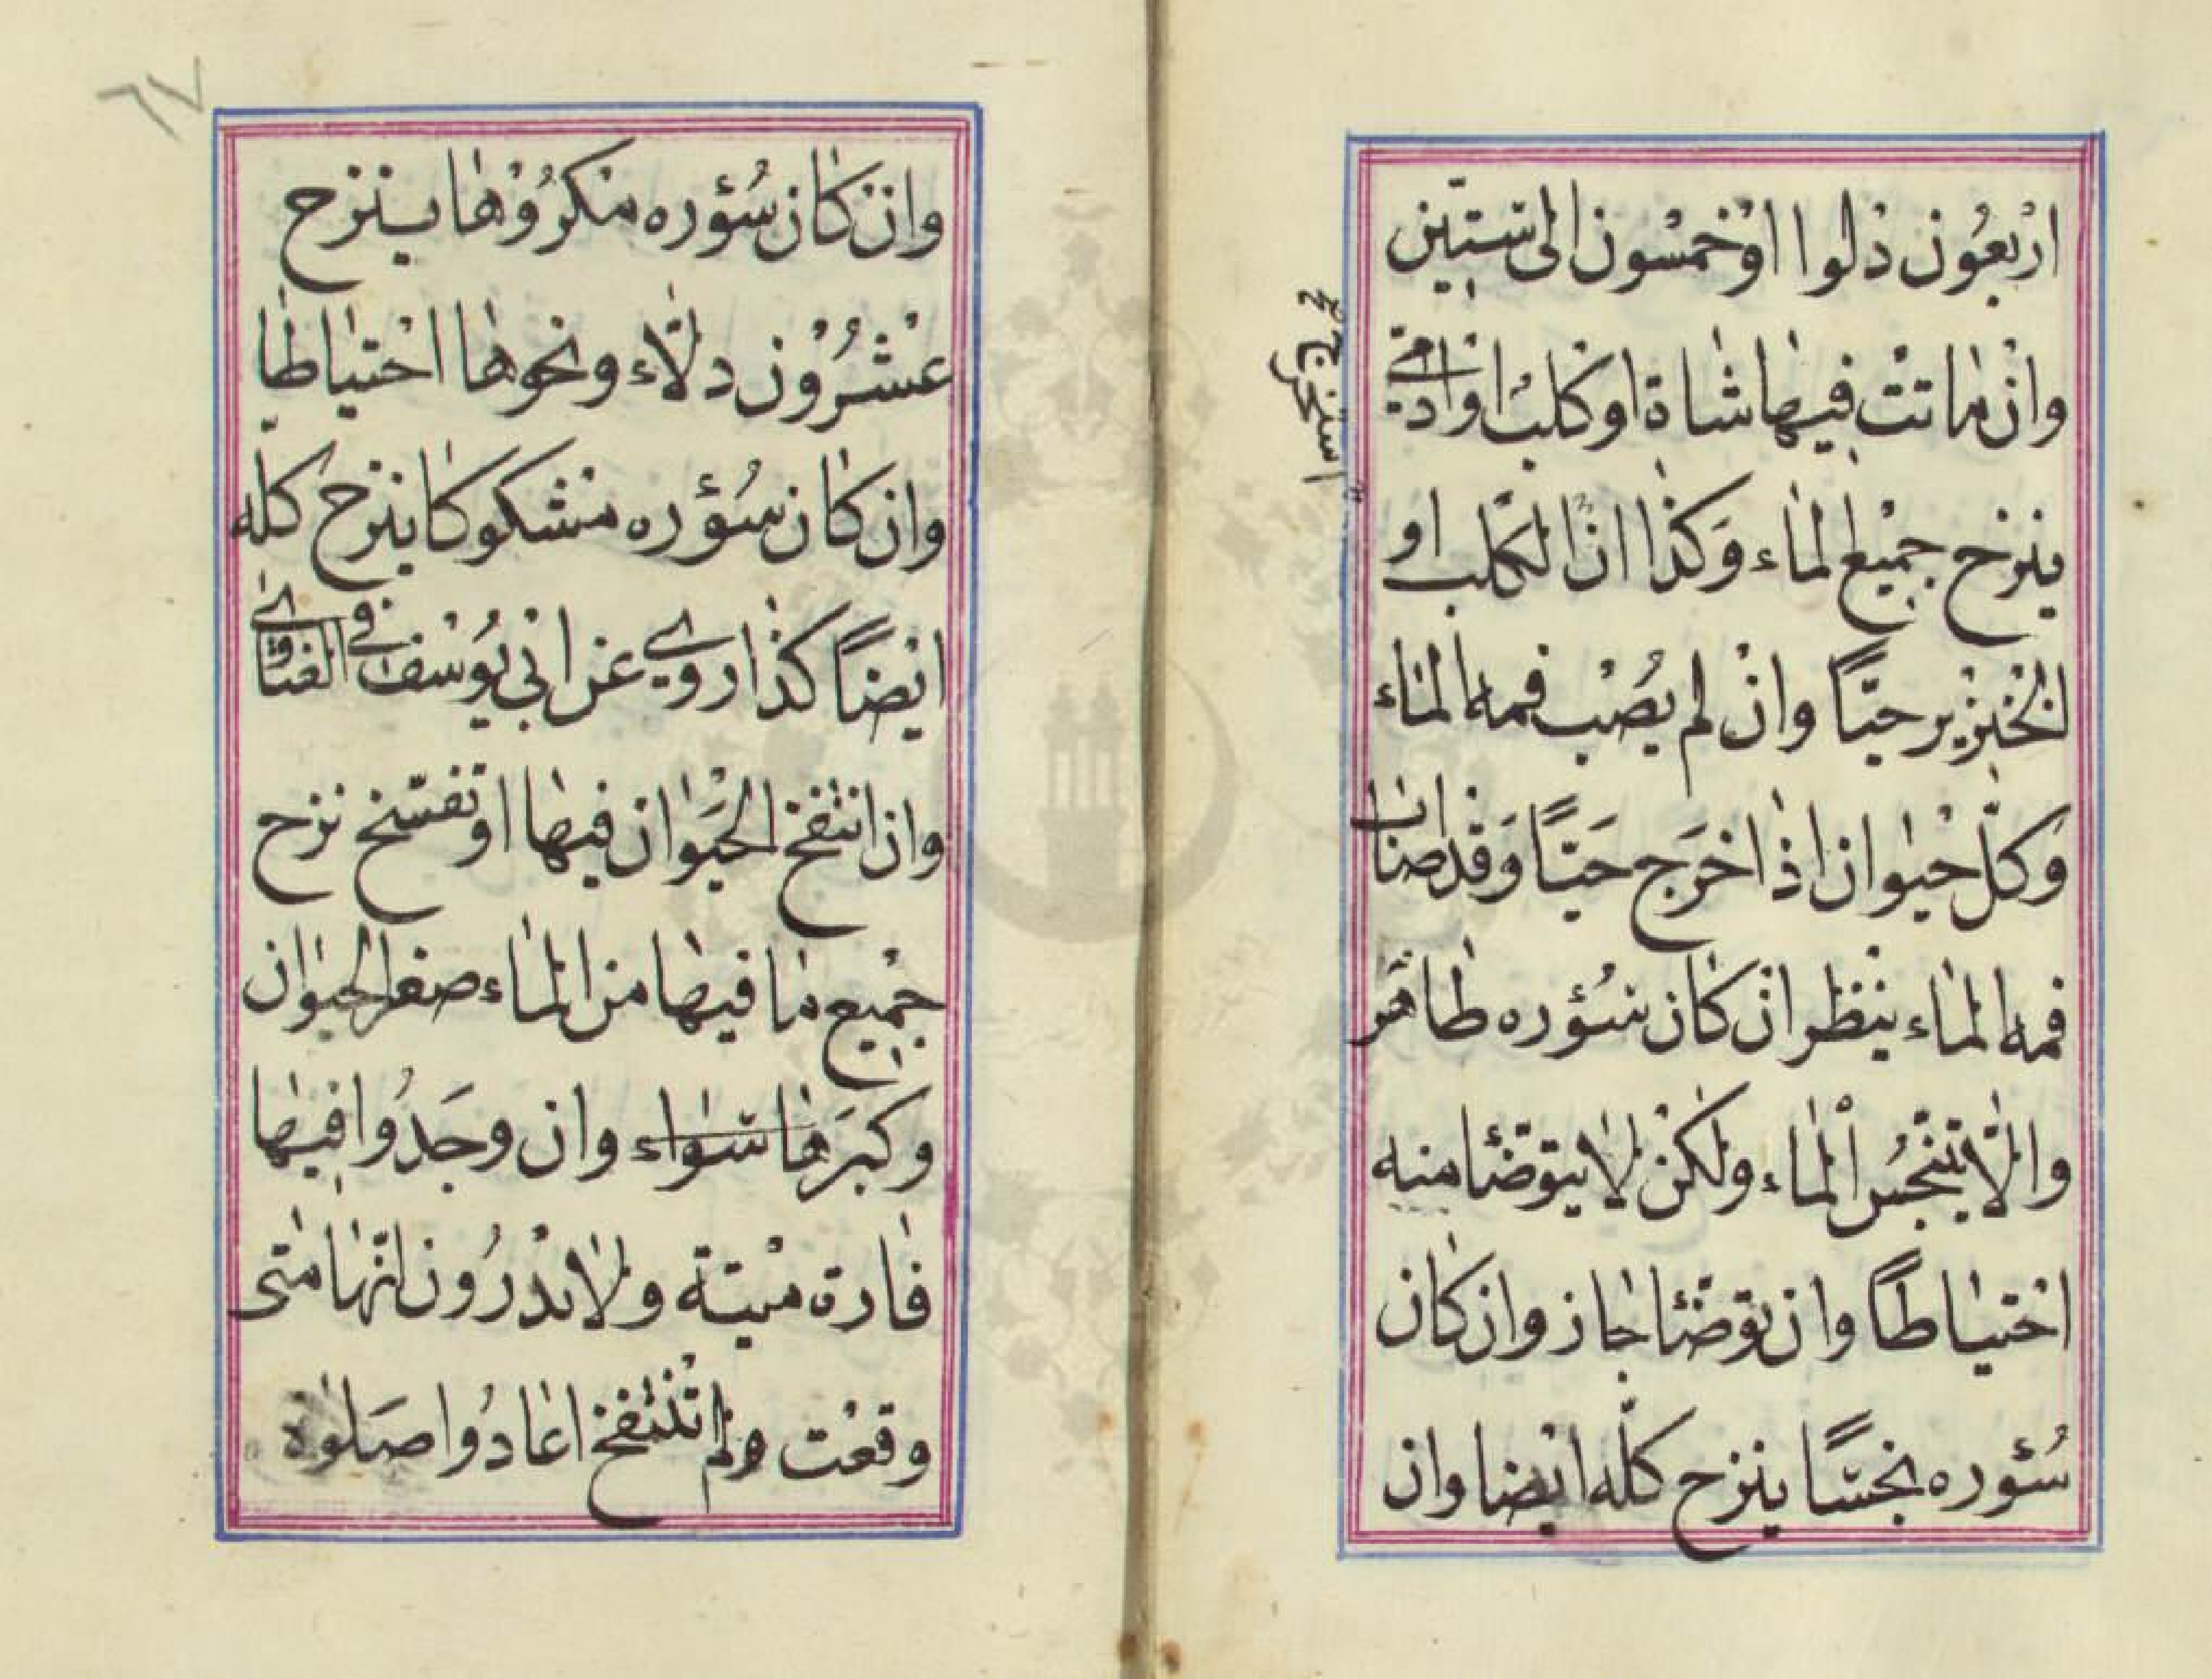 اربعون دلوا او خمسون الى ستين
وان ماتت فيها شاة او كلب او ادمي
ينزح جميع الماء وكذا ان الكلب او
استخرج صح
الخنزير حيّاً وان لم يصب فمه الماء
وكلّ حيوان اذا اخرج حيّاً وقد اصاب
فمه الماء ينظر ان كان سؤره طاهر
والّا يتنجّس الماء ولكن لا يتوضّأ منه
احتياطاً وان توضّأ جاز وان كان
سُئوره نجسًا ينزح كلّه ايضا وان
٦٧
وان كان سُؤره مكروها ينزح
عشرون دلاّء ونحوها احتياطا
وان كان سُؤره مشكوكا ينزح كلّه
ايضاً كذا روي عن ابي يوسف في الفتاوى
وان انتفخ الحيوان فيها او تفسّخ نزح
جميع ما فيها من الماء صغر الحيوان
وكبرها سواء وان وجدوا فيها
فارة ميتة ولا يدرون انّها متى
وقعت ولم تنتفخ اعادوا صلوة